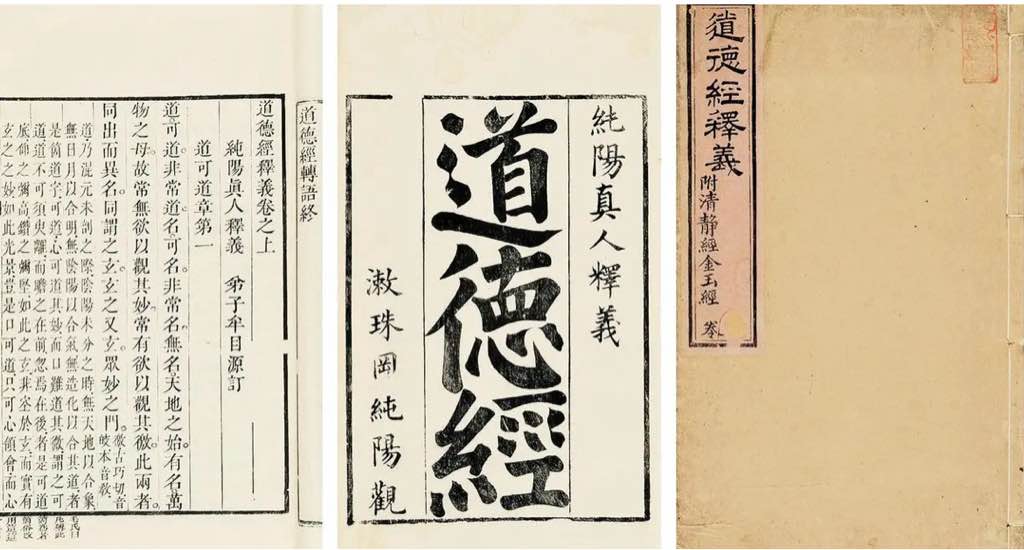 道德經釋義
附清靜經金玉經
純陽真人釋義
道德經
漱珠岡純陽觀
道德經轉語終
道德經釋義卷之上
純陽眞人釋義 弟子牟目源訂
道可道章第一
道可道。非常道。名可名。非常名。無名。天地之始。有名。萬
物之母。故常無欲以觀其妙。常有欲以觀其徼。此兩者。
同出而異名。同謂之玄。玄之又玄。眾妙之門。徼古巧切音
本音教
道乃混元未剖之際陰陽未分之時無天地以合象
無日月以合明無陰陽以合氣無造化以合其道者
是箇道字可道心可道其妙而口難道其微謂之可
道道不可須臾離而瞻之在前忽焉在後者是可道
底仰之彌高鑽之彌堅如此之玄非空於玄而實有
玄之之妙如此光景豈是口可道只可心領會而心